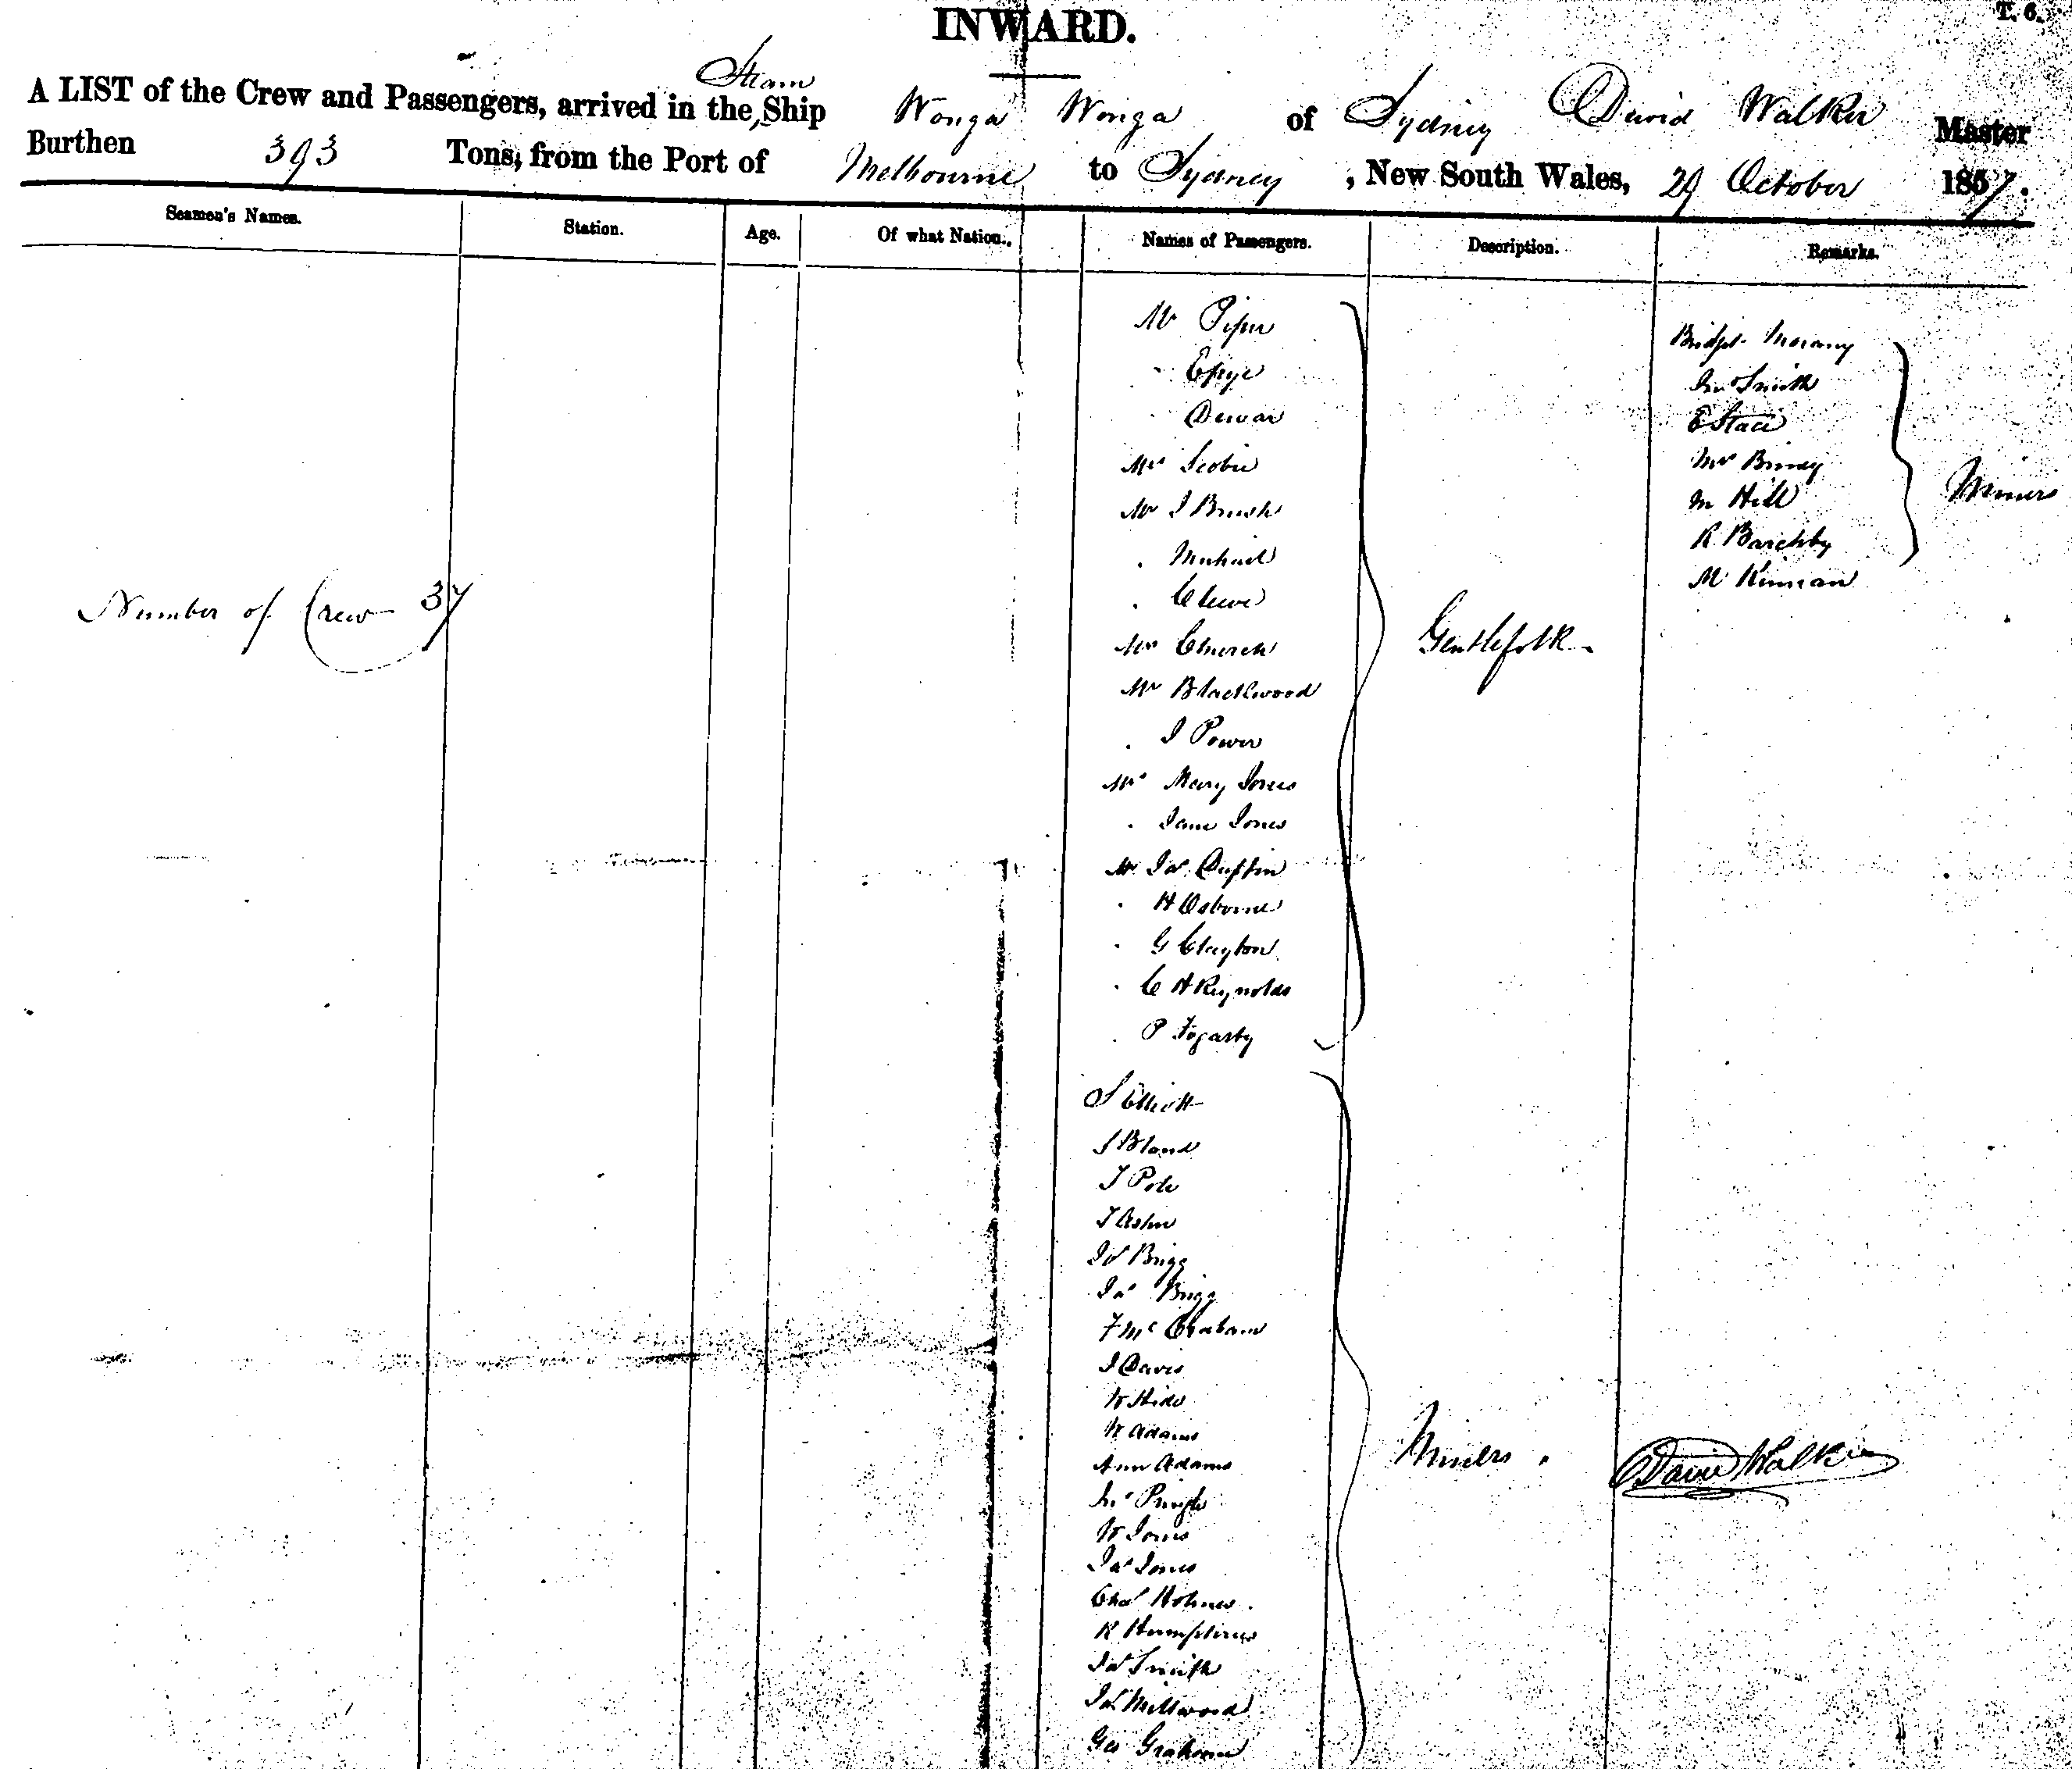 T. 6.
INWARD.
Steam
A LIST of the Crew and Passengers, arrived in the Ship Wonga Wonga of Sydney David Walker Master
Burthen 393 Tons, from the Port of Melbourne to Sydney, New South Wales, 29 October 1857.
Seamen's Names. Station. Age. Of what Nation. Names of Passengers. Description. Remarks.
Number of Crew 37
Mr Piper
Dewar
Mrs Scobie
Mr J Brush
" Michael
" Clewe
Mrs Church
Mr Blackwood
" J Power
Mrs Mary Jones
" Jane Jones
Mr Jas Duffin
" H Osborne
" G Clayton
" C H Reynolds
" P Fogarty
Gentlefolk
S Elliott
J Bland
T Pole
Jas Brigg
Jas Brigg
F Mc
J Davis
W
W Adams
Ann Adams
Jno Pringle
W Jones
Jas Jones
Chas Holmes
R Humphries
Jas Smith
Jas Millwood
Geo Grahame
Miners
Bridget
Jno Smith
E Stace
Mrs
M Hill
R
M Kinnean
Miners
David Walker